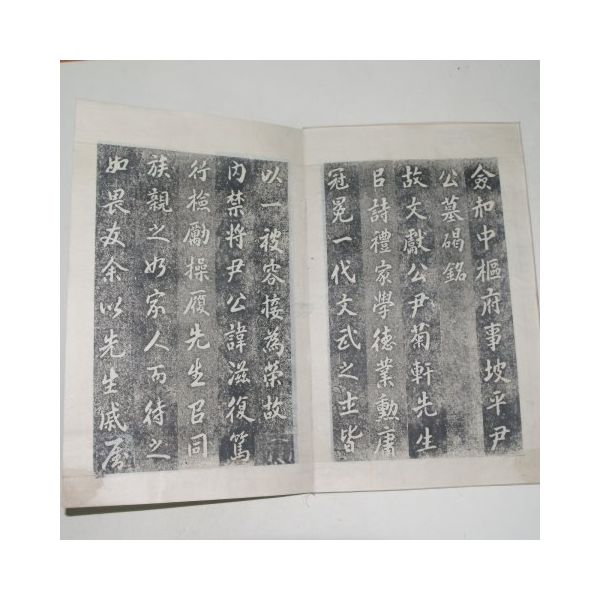 僉知中樞府事坡平尹
公墓碣銘
故文獻公尹菊軒先生
㠯詩禮家學德業勳庸
冠冕一代文武之士皆
以一被容接為榮故
內禁將尹公諱滋復篤
行檢勵操履先生㠯同
族親之如家人而待之
如畏友余以先生戚屬